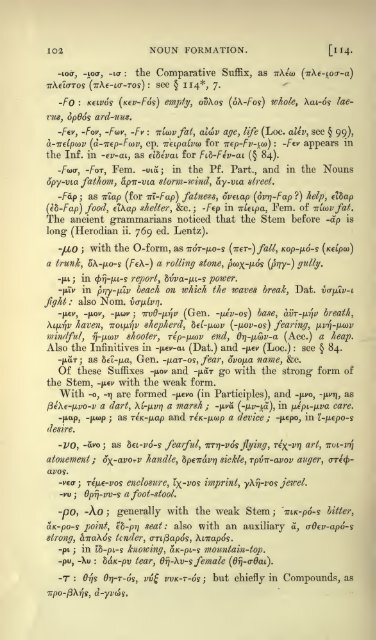 102 NOUN FORMATION. [114.
-ιοσ, -ι̯οσ, -ισ : the Comparative Suffix, as πλέω (πλε-ιοσ-α)
πλεῖστος (πλε-ισ-τος) : see § 114*, 7.
-Fo : κεινός (κεν-Fός) empty, οὖλος (ὅλ-Fος) whole, λαι-ός lae-
vus, ὀρθός ard-uus.
-Fεν, -Fον, -Fων, -Fν : πίων fat, αἰών age, life (Loc. αἰέν, see § 99),
ἀ-πείρων (ἀ-περ-Fων, cp. πειραίνω for περ-Fν-ι̯ω) : -Fεν appears in
the Inf. in -εν-αι, as εἰδέναι for Fιδ-Fέν-αι (§ 84).
-Fωσ, -Fοτ, Fem. -υιᾰ ; in the Pf. Part., and in the Nouns
ὄργ-υια fathom, ἅρπ-υια storm-wind, ἄγ-υια street.
-Fᾰρ ; as πῖαρ (for πῖ-Fαρ) fatness, ὄνειαρ (ὀνη-Fαρ ?) help, εἶδαρ
(ἐδ-Fαρ) food, εἶλαρ shelter, &c. ; -Fερ in πίειρα, Fem. of πίων fat.
The ancient grammarians noticed that the Stem before -ᾰρ is
long (Herodian ii. 769 ed. Lentz).
-μο ; with the O-form, as πότ-μο-ς (πετ-) fall, κορ-μό-ς (κείρω)
a trunk, ὅλ-μο-ς (Fελ-) a rolling stone, ῥωχ-μός (ῥηγ-) gully.
-μι ; in φῆ-μι-ς report, δύνα-μι-ς power.
-μῑν in ῥηγ-μῖν beach on which the waves break, Dat. ὑσμῖν-ι
fight : also Nom. ὑσμίνη.
-μεν, -μον, -μων ; πυθ-μήν (Gen. -μέν-ος) base, ἀϋτ-μήν breath,
λιμήν haven, ποιμήν shepherd, δεί-μων (-μον-ος) fearing, μνή-μων
mindful, ἥ-μων shooter, τέρ-μων end, θη-μῶν-α (Acc.) a heap.
Also the Infinitives in -μεν-αι (Dat.) and -μεν (Loc.) : see § 84.
-μᾰτ ; as δεῖ-μα, Gen. -ματ-ος, fear, ὄνομα name, &c.
Of these Suffixes -μον and -μᾰτ go with the strong form of
the Stem, -μεν with the weak form.
With -ο, -η are formed -μενο (in Participles), and -μνο, -μνη, as
βέλε-μνο-ν a dart, λί-μνη a marsh ; -μνᾰ (-μν-ι̯ᾰ), in μέρι-μνα care.
-μαρ, -μωρ ; as τέκ-μαρ and τέκ-μωρ a device ; -μερο, in ἵ-μερο-ς
desire.
-νο, -ᾰνο ; as δει-νό-ς fearful, πτη-νός flying, τέχ-νη art, ποι-νή
atonement ; ὄχ-ανο-ν handle, δρεπάνη sickle, τρύπ-ανον auger, στέφ-
ανος.
-νεσ ; τέμε-νος enclosure, ἴχ-νος imprint, γλῆ-νος jewel.
-νυ ; θρῆ-νυ-ς a foot-stool.
-ρο, -λο ; generally with the weak Stem ; πικ-ρό-ς bitter,
ἄκ-ρο-ς point, ἕδ-ρη seat : also with an auxiliary ᾰ, σθεν-αρό-ς
strong, ἁπαλός tender, στιβαρός, λιπαρός.
-ρι ; in ἴδ-ρι-ς knowing, ἄκ-ρι-ς mountain-top.
-ρυ, -λυ : δάκ-ρυ tear, θῆ-λυ-ς female (θῆ-σθαι).
-τ : θής θη-τ-ός, νύξ νυκ-τ-ός ; but chiefly in Compounds, as
προ-βλής, ἀ-γνώς.